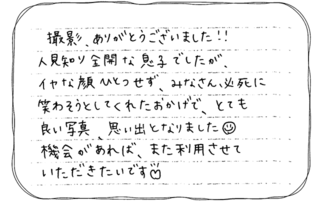 撮影、ありがとうございました!!
人見知り全開な息子でしたが、
イヤな顔ひとつせず、みなさん必死に
笑わそうとしてくれたおかげで、とても
良い写真、思い出となりました☺
機会があれば、また利用させて
いただきたいです♡